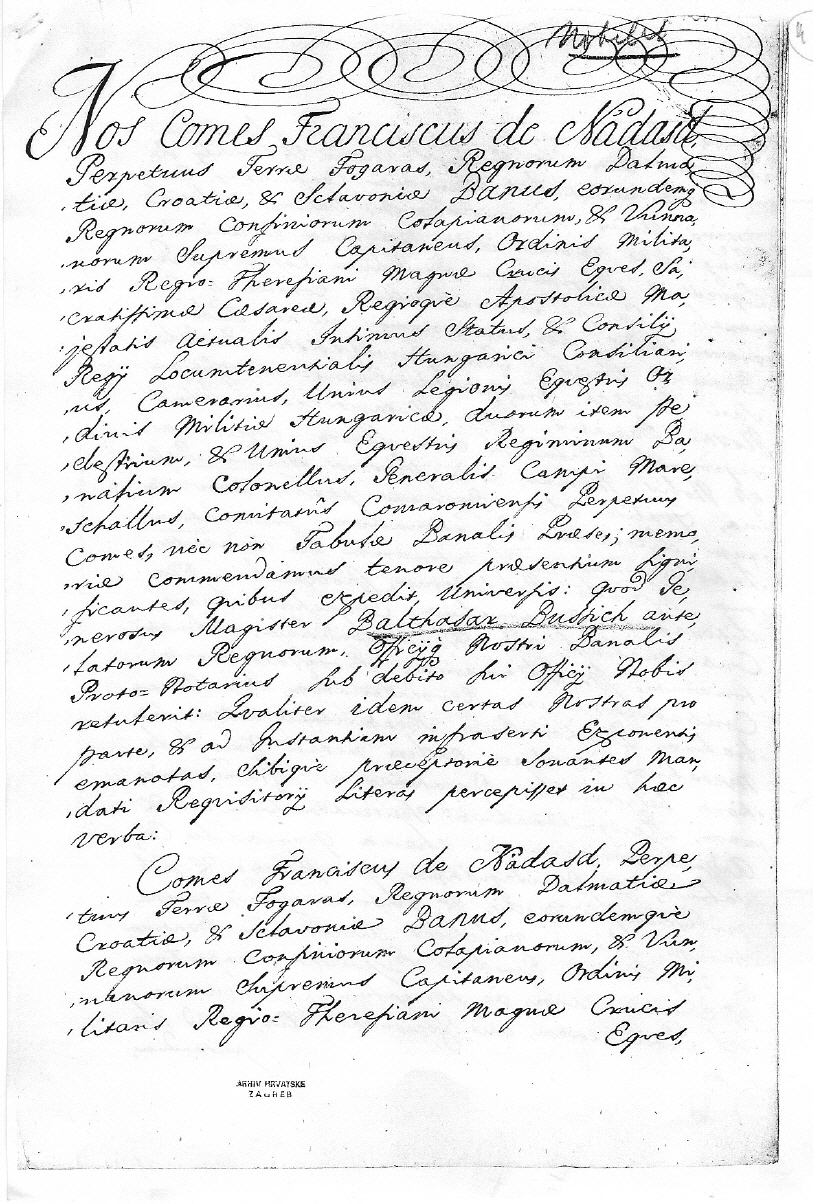 Nobilit
4
Nos Comes Franciscus de Nádasd,
Perpetuus Terræ Fogaras, Regnorum Dalma,
,tiæ, Croatiæ, & Sclavoniæ Banus, eorundemq
Regnorum Confiniorum Colapianorum, & Vunna,
,norum Supremus Capitaneus, Ordinis Milita,
,ris Regio= Theresiani Magnæ Crucis Eques, Sa,
,cratissimæ Cæsareæ, Regioqùe Apostolicæ Ma,
,jestatis Actualis Intimus Status, & Consilÿ
Regÿ Locumtenentialis Hungarici Consiliari,
,us, Camerarius, Unius Legionis Equestris Or,
,dinis Militiæ Hungaricæ, duorum item Pe,
,destrium, & Unius Equestris Regiminum Ba,
,natium Colonellus, Generalis Campi Mare,
,schallus, Comitatûs Comaromiensis Perpetuus
Comes, nèc nòn Tabulæ Banalis Præses; memo,
,riæ commendamus tenore præsentium signi,
,ficantes, quibus expedit, Universis: quod Ge,
,nerosus Magister Balthasar Bussich ante,
,latorum Regnorum, Officÿq Nostri Banalis
Proto= Notarius sub debito sui Officÿ Nobis
retulerit: Qualiter idem certas Nostras pro
parte, & ad Instantiam infraserti Exponentis
emanatas, Sibiqùe præceptoriè sonantes Man,
,dati Requisitorÿ Literas percepisset in hæc
verba:
Comes Franciscus de Nádasd, Perpe,
,tuus Terræ Fogaras, Regnorum Dalmatiæ
Croatiæ, & Sclavoniæ Banus, eorundemqùe
Regnorum Confiniorum Colapianorum, & Vun,
,nanorum Supremus Capitaneus, Ordinis Mi,
,litaris Regio= Theresiani Magnæ Crucis
Eques,
ARHIV HRVATSKE
ZAGREB